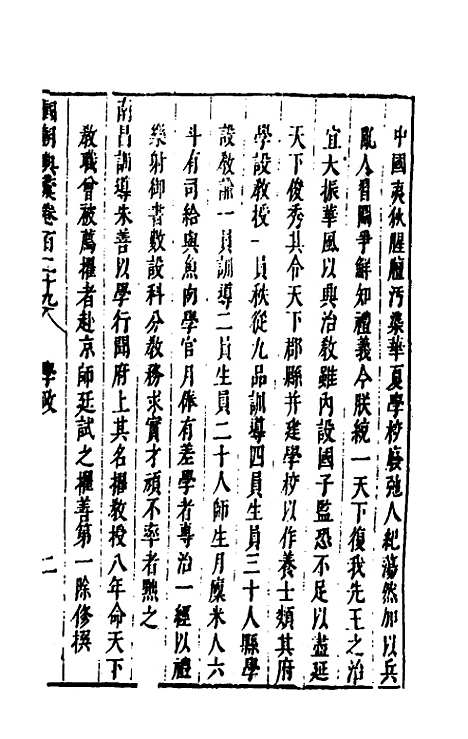 中國夷狄腥膻污染華夏學校廢弛人紀蕩然加以兵
亂人習鬪爭鮮知禮義今朕統一天下復我先王之治
宜大振華風以興治教雖內設國子監恐不足以盡延
天下俊秀其令天下郡縣并建學校以作養士類其府
學設教授一員秩從九品訓導四員生員三十人縣學
設教諭一員訓導二員生員二十人師生月廩米人六
斗有司給與魚肉學官月俸有差學者專治一經以禮
樂射御書數設科分教務求實才頑不率者黜之
南昌訓導朱善以學行聞府上其名擢教授八年命天下
教職曾被薦擢者赴京師廷試之擢善第一除修撰
國朝典彙卷百二十九 學政 二